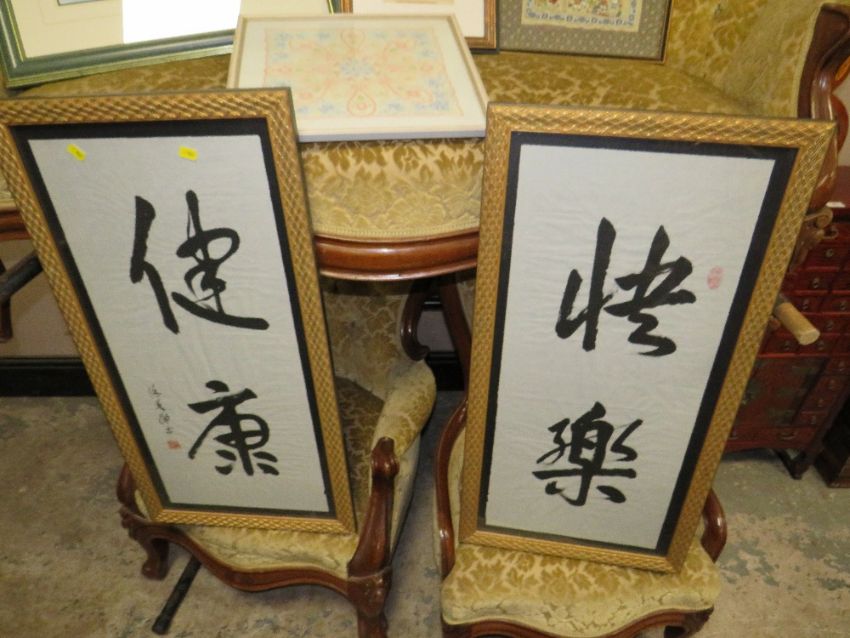 健康
快樂